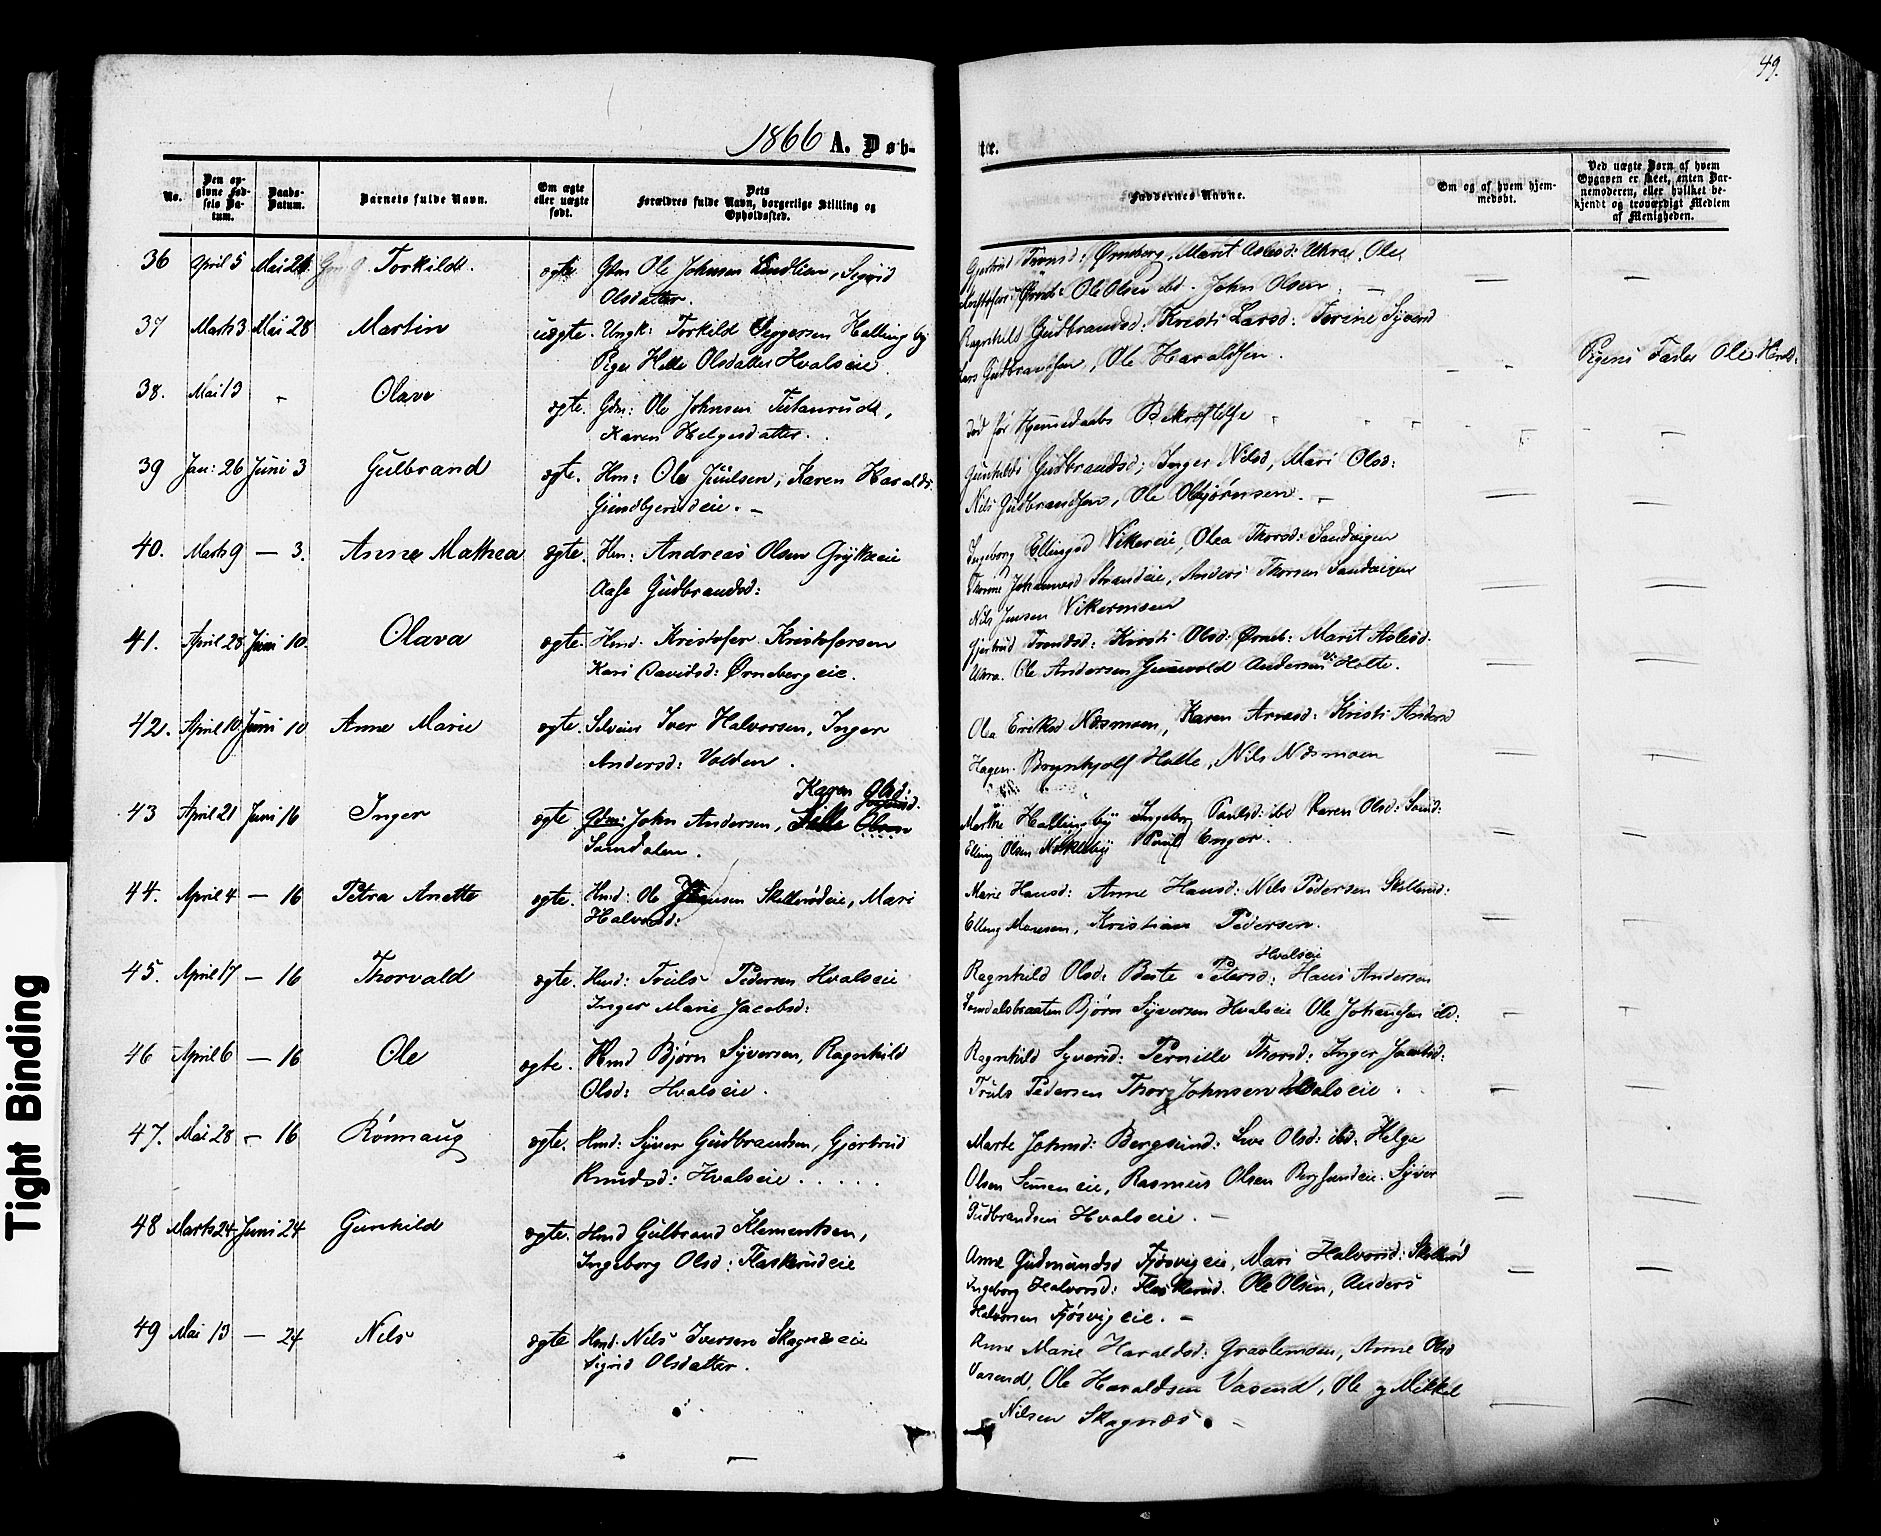 49.
1866 A. Døb-
te.
No.
Den opgivne Fødsels Datum.
Daabs-Datum.
Barnets fulde Navn.
Om ægte eller uægte født.
Dets Forældres fulde Navn, borgerlige Stilling og Opholdssted.
Faddernes Navne.
Om og af hvem hjemmedøbt.
Ved uægte Barn af hvem Opgaven er skeet, enten Barnemoderen, eller hvilket bekjendt og troværdigt Medlem af Menigheden.
36 April 5 Mai Torkild. ægte Gdm Ole Johnsen, Sigrid
Olsdatter.
Gjertrud Tronsd: Ørneberg, Marit Aslesd: Ole
Ole Olsen ibd. John Olsen. —
37 Marts 3 Mai 28 Martin uægte. Ungk: Torkild Hallingby
Pige Helle Olsdatter Hvalseie
Ragnhild Gudbrandsd: Kristi Larsd: Torine Syversd
Lars Gudbrandsen, Ole Haraldsen.
Pigens Fader Ole
38. Mai 13 - Olava ægte. Gdm: Ole Johnsen
Karen Helgesdatter.
død før Hjemmedaabs Bekræftelse
39 Jan: 26 Juni 3 Gulbrand ægte. Hm: Ole Juulsen, Karen Haralds:
Gunhild Gudbrandsd; Inger Nilsd, Mari Olsd:
Nils Gudbrandsen, Ole Olbjørnsen. —
40. Marts 9 — 3. Anne Mathea ægte. Hm: Andreas Olsen
Aase Gudbrandsd:
Ingeborg Ellingsd Vikereie, Olea Thorsd: Sandvigen
Johannesd Strandeie, Anders Thorsen Sandvigen
Nils Jensen Vikermoen
41. April 28 Juni 10. Olava ægte. Hmd: Kristofer Kristofersen
Kari Davidsd: Ørnebergeie.
Gjertrud Tronsd: Kirsti Olsd: Ørneb: Marit Aslesd.
Ole Andersen Gunvold Andersen Holte.
42. April 10 Juni 10 Anne Marie ægte. Selveier Iver Halvorsen, Inger
Andersd: Volden.
Olea Eriksd Næsmoen, Karen Arnesd: Kristi Andersd
Hagen. Brynhjolf Holte, Nils Næsmoen
43 April 21 Juni 16 Inger ægte Gdm: John Andersen, Karen Olsd:
Samdalen.
Marthe Hallingby Ingeborg Paulsd: ibd Karen Olsd: Samd:
Elling Olsen Paul Enger.
44. April 4 — 16 Petra Anette ægte. Hmd: Ole Skollerudeie, Mari
Halvorsd:
Marie Hansd: Anne Hansd: Nils Pedersen
Elling Monsen, Kristian Pedersen.
45. April 17 — 16 Thorvald ægte. Hmd: Truls Pedersen Hvalseie
Inger Marie Jacobsd:
Ragnhild Olsd: Beate Pedersd: Hvalseie Hans Andersen
Samdalsbraaten Bjørn Syversen Hvalseie Ole Johannsen ibd:
46 April 6 — 16 Ole ægte. Hmd Bjørn Syversen, Ragnhild
Olsd: Hvalseie.
Ragnhild Syversd: Pernille Thorsd: Inger Jacobsd:
Truls Pedersen Thor Johnsen Hvalseie.
47. Mai 28 - 16 Rønnaug ægte. Hmd: Syver Gudbrandsen, Gjertrud
Knudsd: Hvalseie.....
Marte Johnsd: Bergsund: Live Olsd: ibd: Helge
Olsen, Rasmus Olsen Bergsundeie. Syver
Gudbrandsen Hvalseie. —
48 Marts 24 Juni 24 Gunhild ægte. Hmd Gulbrand Klementsen,
Ingeborg Olsd: Flaskerudeie
Anne Gudmundsd Fjøsvigeie, Mari Halvorsd:
Ingeborg Halvorsd: Flaskerud. Ole Olsen, Anders
Halvorsen Fjøsvigeie. —
49 Mai 13 — 24 Nils ægte Hmd: Nils Iversen Skagnæseie
Sigrid Olsdatter.
Anne Marie Haraldsd: Anne Olsd
Vasend, Ole Haraldsen Vasend, Ole og Mikkel
Nilsen Skagnæs. —
Tight Binding